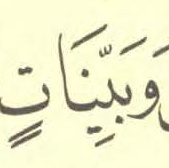 وَبَيِّنَاتٍ